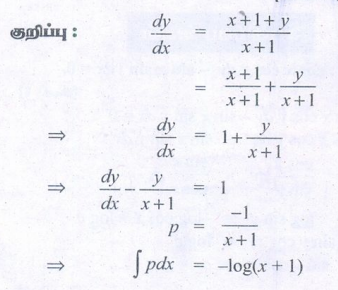 குறிப்பு : dy/dx = (x+1+y)/(x+1)
= (x+1)/(x+1) + y/(x+1)
⇒ dy/dx = 1 + y/(x+1)
⇒ dy/dx − y/(x+1) = 1
p = −1/(x+1)
⇒ ∫pdx = −log(x + 1)